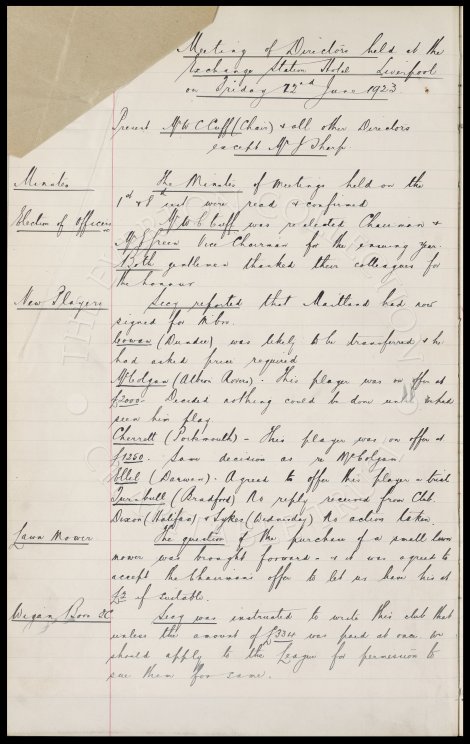 Meeting of Directors held at the
Exchange Station Hotel Liverpool
on Friday 22nd June 1923
Present Mr W C Cuff (Chair) & all other Directors
except Mr J Sharp.
Minutes The Minutes of meetings held on the
1st & 8 inst were read & confirmed
Election of Officers Mr W C Cuff was reelected Chairman &
Mr Green Vice Chairman for the ensuing year.
Both gentlemen thanked their colleagues for
the honour
New Players Secy reported that Maitland had now
signed for M'bro.
Cowan (Dundee) was likely to be transferred & he
had asked price required
McColgan (Albion Rovers). This player was on offer at
£2000. Decided nothing could be done until we had
seen him play
Cherrett (Portsmouth) - This player was on offer at
£1250. Same decision as re McColgan
(Darwen). Agreed to offer this player a trial
Turnbull (Bradford) No reply received from Club.
Dixon (Halifax) & Sykes (Wednesday) No action taken
Lawn Mower The question of the purchase of a small lawn
mower was brought forward - & it was agreed to
accept the Chairmans offer to let us have his at
if suitable.
Wigan Boro FC Secy was instructed to write this club that
unless the amount of £334 was paid at once we
should apply to the League for permission to
sue them for same.